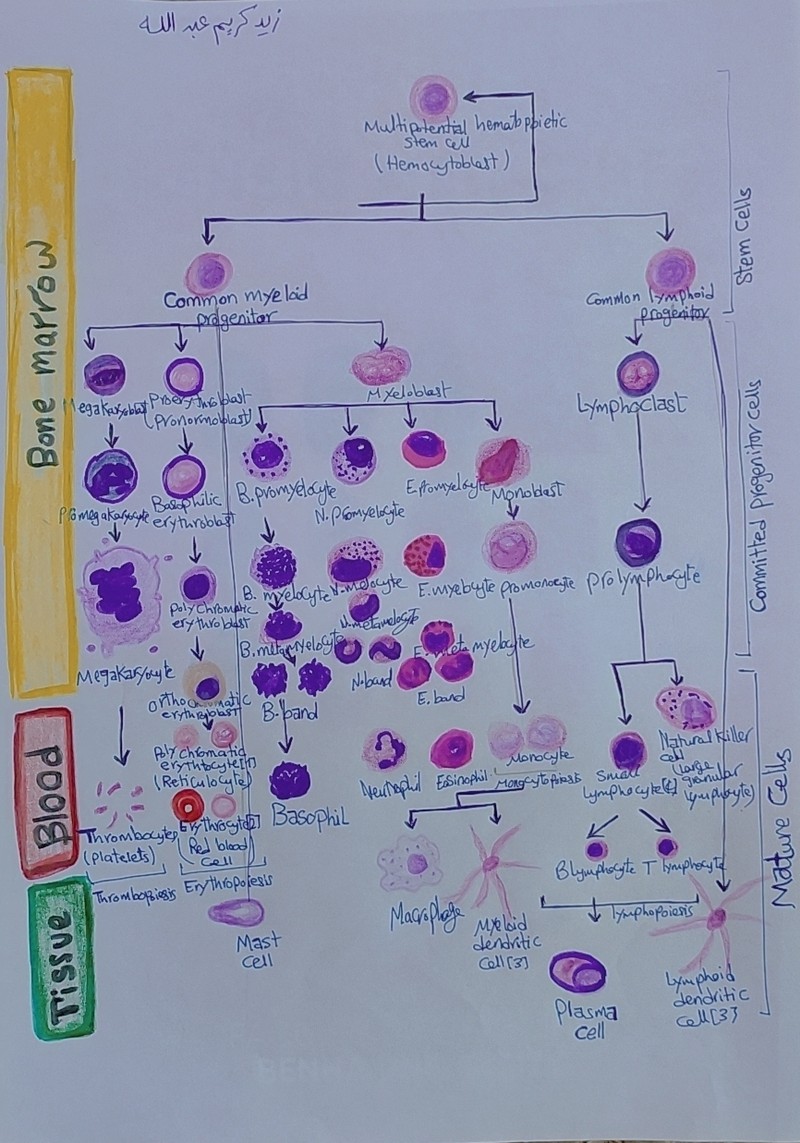 زيد كريم عبد الله
Multipotential hematopoietic
stem cell
(Hemocytoblast)
Stem Cells
Common myeloid
progenitor
Common lymphoid
progenitor
Bone marrow
Megakaryoblast
Proerythroblast
(pronormoblast)
Myeloblast
Lymphoclast
Committed progenitor cells
Promegakaryocyte
Basophilic
erythroblast
B.promyelocyte
N.promyelocyte
E.promyelocyte
Monoblast
Polychromatic
erythroblast
B.myelocyte
N.melocyte
E.myelocyte
promonocyte
prolymphocyte
Megakaryocyte
B.metamyelocyte
N.metamelocyte
E.metamyelocyte
Orthochromatic
erythroblast
B.band
N.band
E.band
Blood
Polychromatic
erythrocyte[1]
(Reticulocyte)
Basophil
Neutrophil
Eosinophil
Monocyte
Monocytopoiesis
Small
lymphocyte
Natural killer
cell
(large
granular
lymphocyte)
Mature Cells
Thrombocytes
(Platelets)
Erythrocyte
Red blood
cell
Thrombopoiesis
Erythropoiesis
B lymphocyte
T lymphocyte
lymphopoiesis
Tissue
Mast
cell
Macrophage
Myeloid
dendritic
cell[3]
Plasma
cell
Lymphoid
dendritic
cell[3]